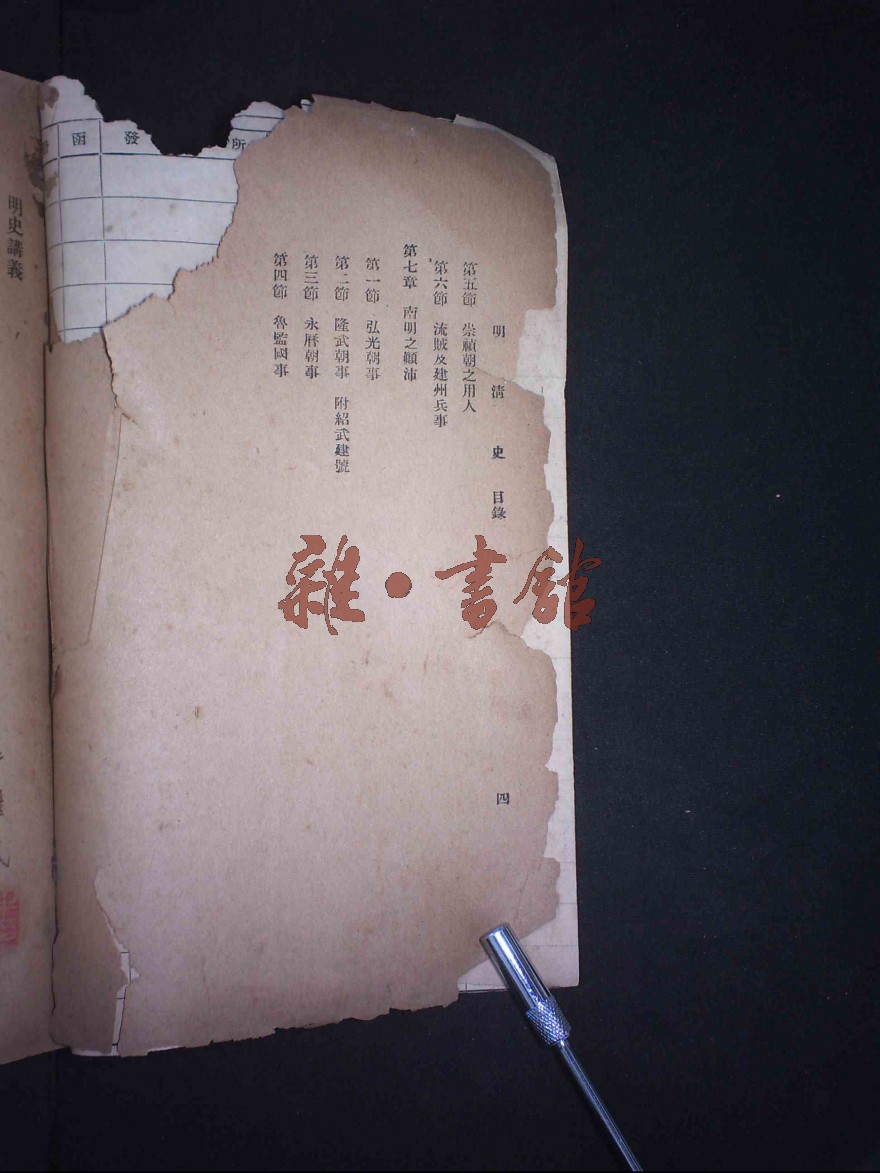 明清史 目錄
第五節 崇禎朝之用人
第六節 流賊及建州兵事
第七章 南明之顚沛
第一節 弘光朝事
第二節 隆武朝事 附紹武建號
第三節 永曆朝事
第四節 魯監國事
四
所
發
函
明史講義
雜·書館